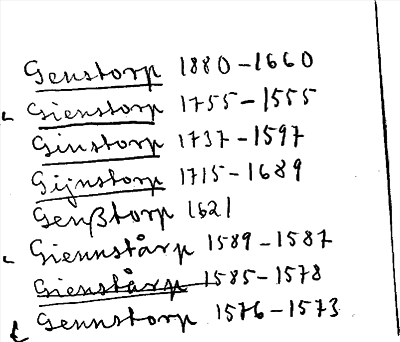 Genstorp 1880-1660
Gienstorp 1755-1555
Ginstorp 1737-1597
Gijnstorp 1715-1689
Genßtorp 1621
Giennstårp 1589-1587
Gienstårp 1585-1578
Gennstorp 1576-1573